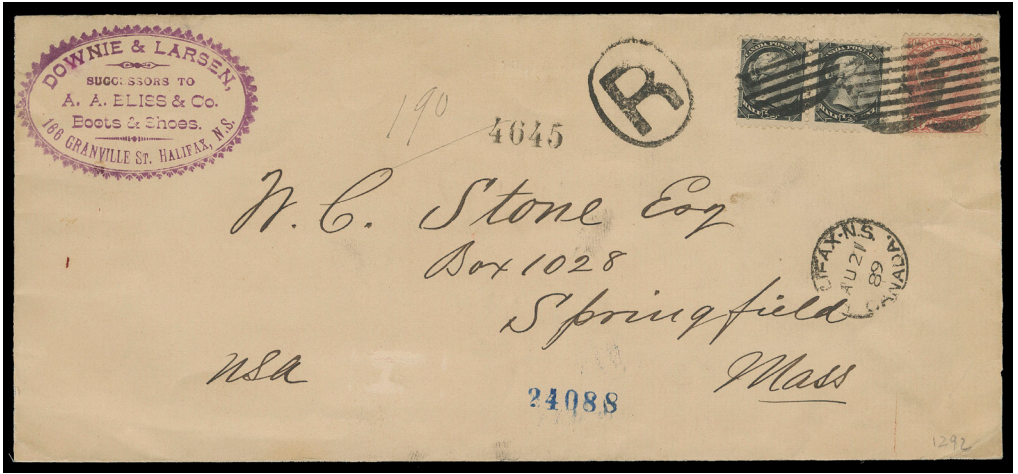 DOWNIE & LARSEN,
SUCCESSORS TO
A. A. BLISS & Co.
Boots & Shoes.
166 GRANVILLE ST. HALIFAX, N.S.
190
4645
R
CANADA POSTAGE
W. C. Stone Esq
Box 1028
Springfield
Mass
USA
LIFAX·N.S.
AU 21
89
CANADA.
24088
1292